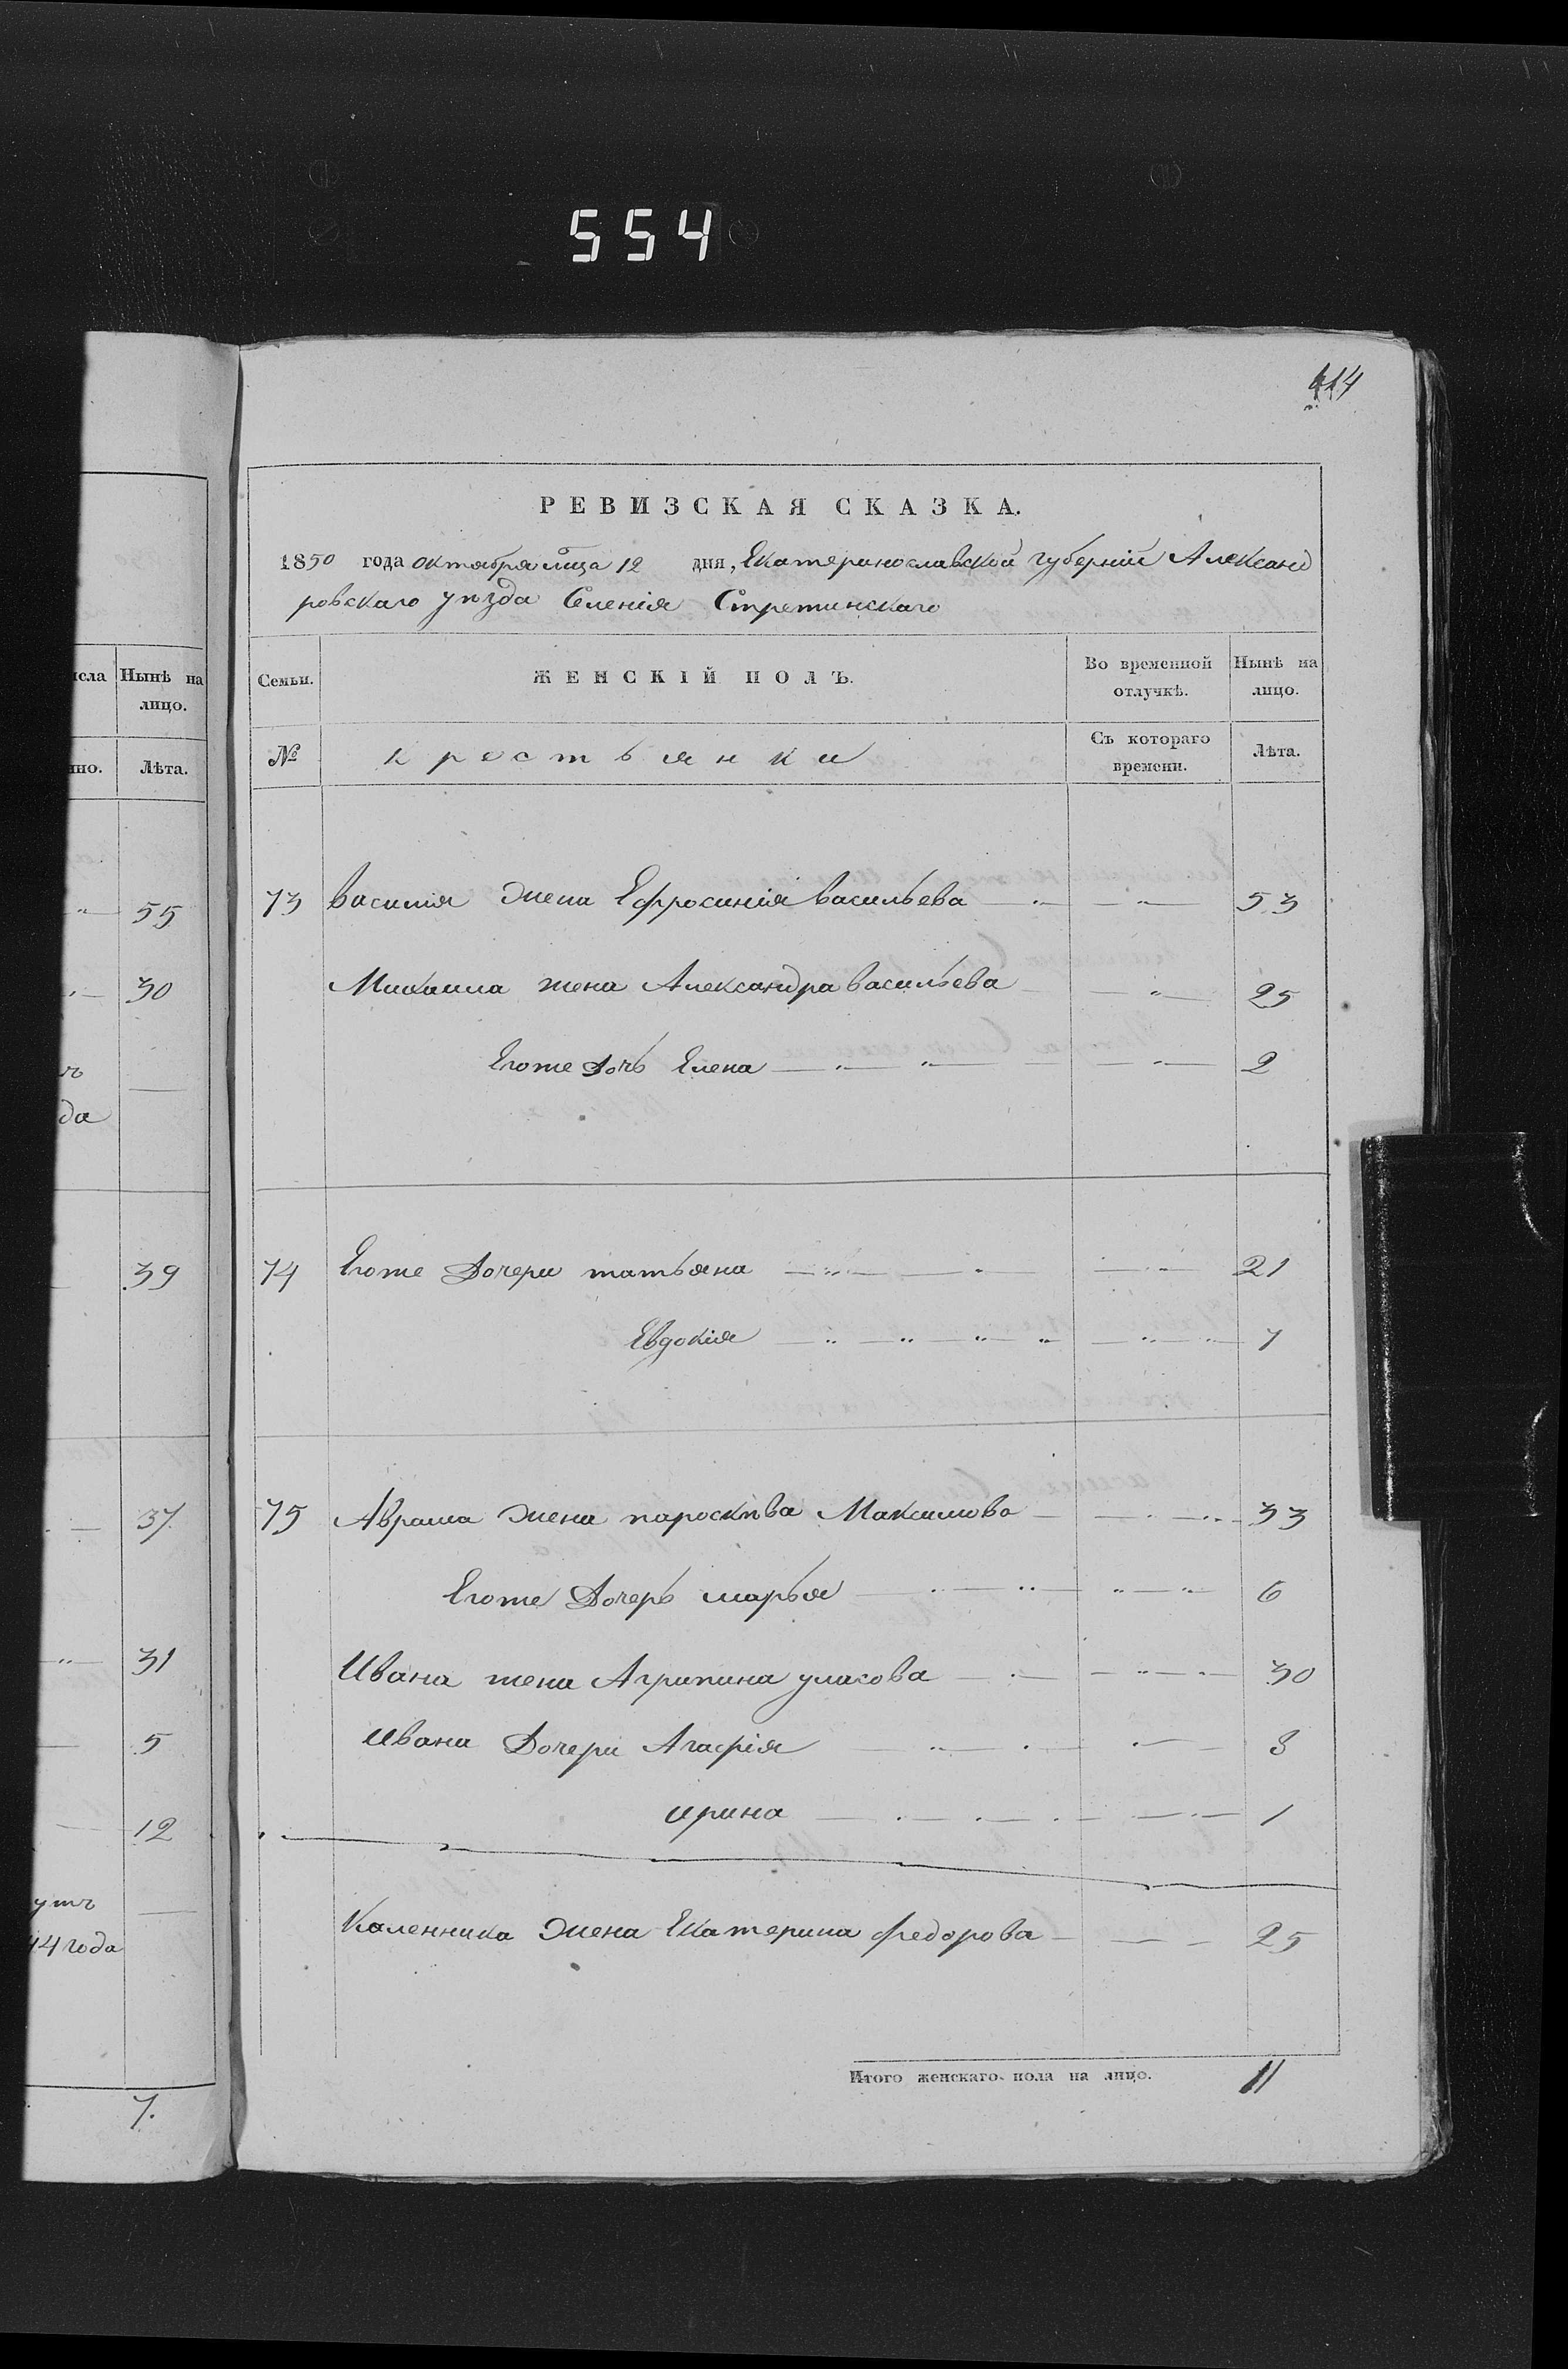 554
414
исла
Нынѣ на
лицо.
нно.
Лѣта.
55
30
да
39
37.
31
5
12
утъ
44 года
7.
РЕВИЗСКАЯ СКАЗКА.
1850 года октября мца 12 дня, Екатеринославской губернии Александ
ровскаго уѣзда Селенія Стретинскаго
Семьи.
ЖЕНСКІЙ ПОЛЪ.
Во временной
отлучкѣ.
Нынѣ на
лицо.
№
крестьянки
Съ котораго
времени.
Лѣта.
73 Василия жена Ефросинія Васильева 53
Михаила жена Александра Васильева 25
Егоже дочь Елена 2
74 Егоже Дочери татьяна 21
Евдокія 7
75 Аврама жена параскѣва Максимова 33
Егоже Дочерь марья 6
Ивана жена Агрипина уласова 30
Ивана Дочери Агафія 8
ирина 1
Каленника жена Екатерина федорова 25
Итого женскаго пола на лицо. 11